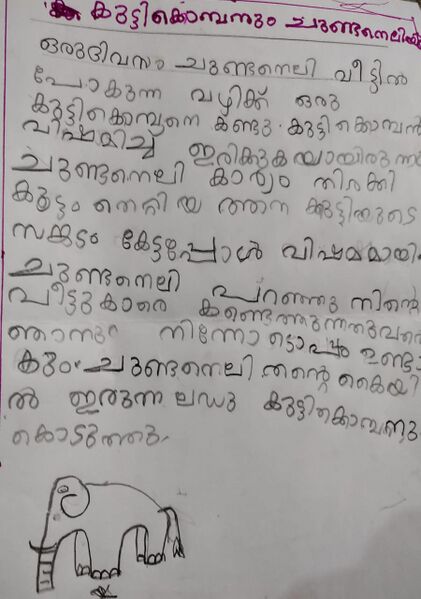 കുട്ടികൊമ്പനും ചുണ്ടനെലിയും
ഒരുദിവസം ചുണ്ടനെലി വീട്ടിൽ
പോകുന്ന വഴിക്ക് ഒരു
കുട്ടികൊമ്പനെ കണ്ടു. കുട്ടികൊമ്പൻ
വിഷമിച്ച് ഇരിക്കുകയായിരുന്നു
ചുണ്ടനെലി കാര്യം തിരക്കി
കൂട്ടം തെറ്റിയ ആന കുട്ടിയുടെ
സങ്കടം കേട്ടപ്പോൾ വിഷമമായി.
ചുണ്ടനെലി പറഞ്ഞു നിന്റെ
വീട്ടുകാരെ കണ്ടെത്തുന്നതുവരെ
ഞാനും നിന്നോടൊപ്പം ഉണ്ടാ
കും. ചുണ്ടനെലി തന്റെ കൈയി
ൽ ഇരുന്ന ലഡു കുട്ടികൊമ്പനു
കൊടുത്തു.